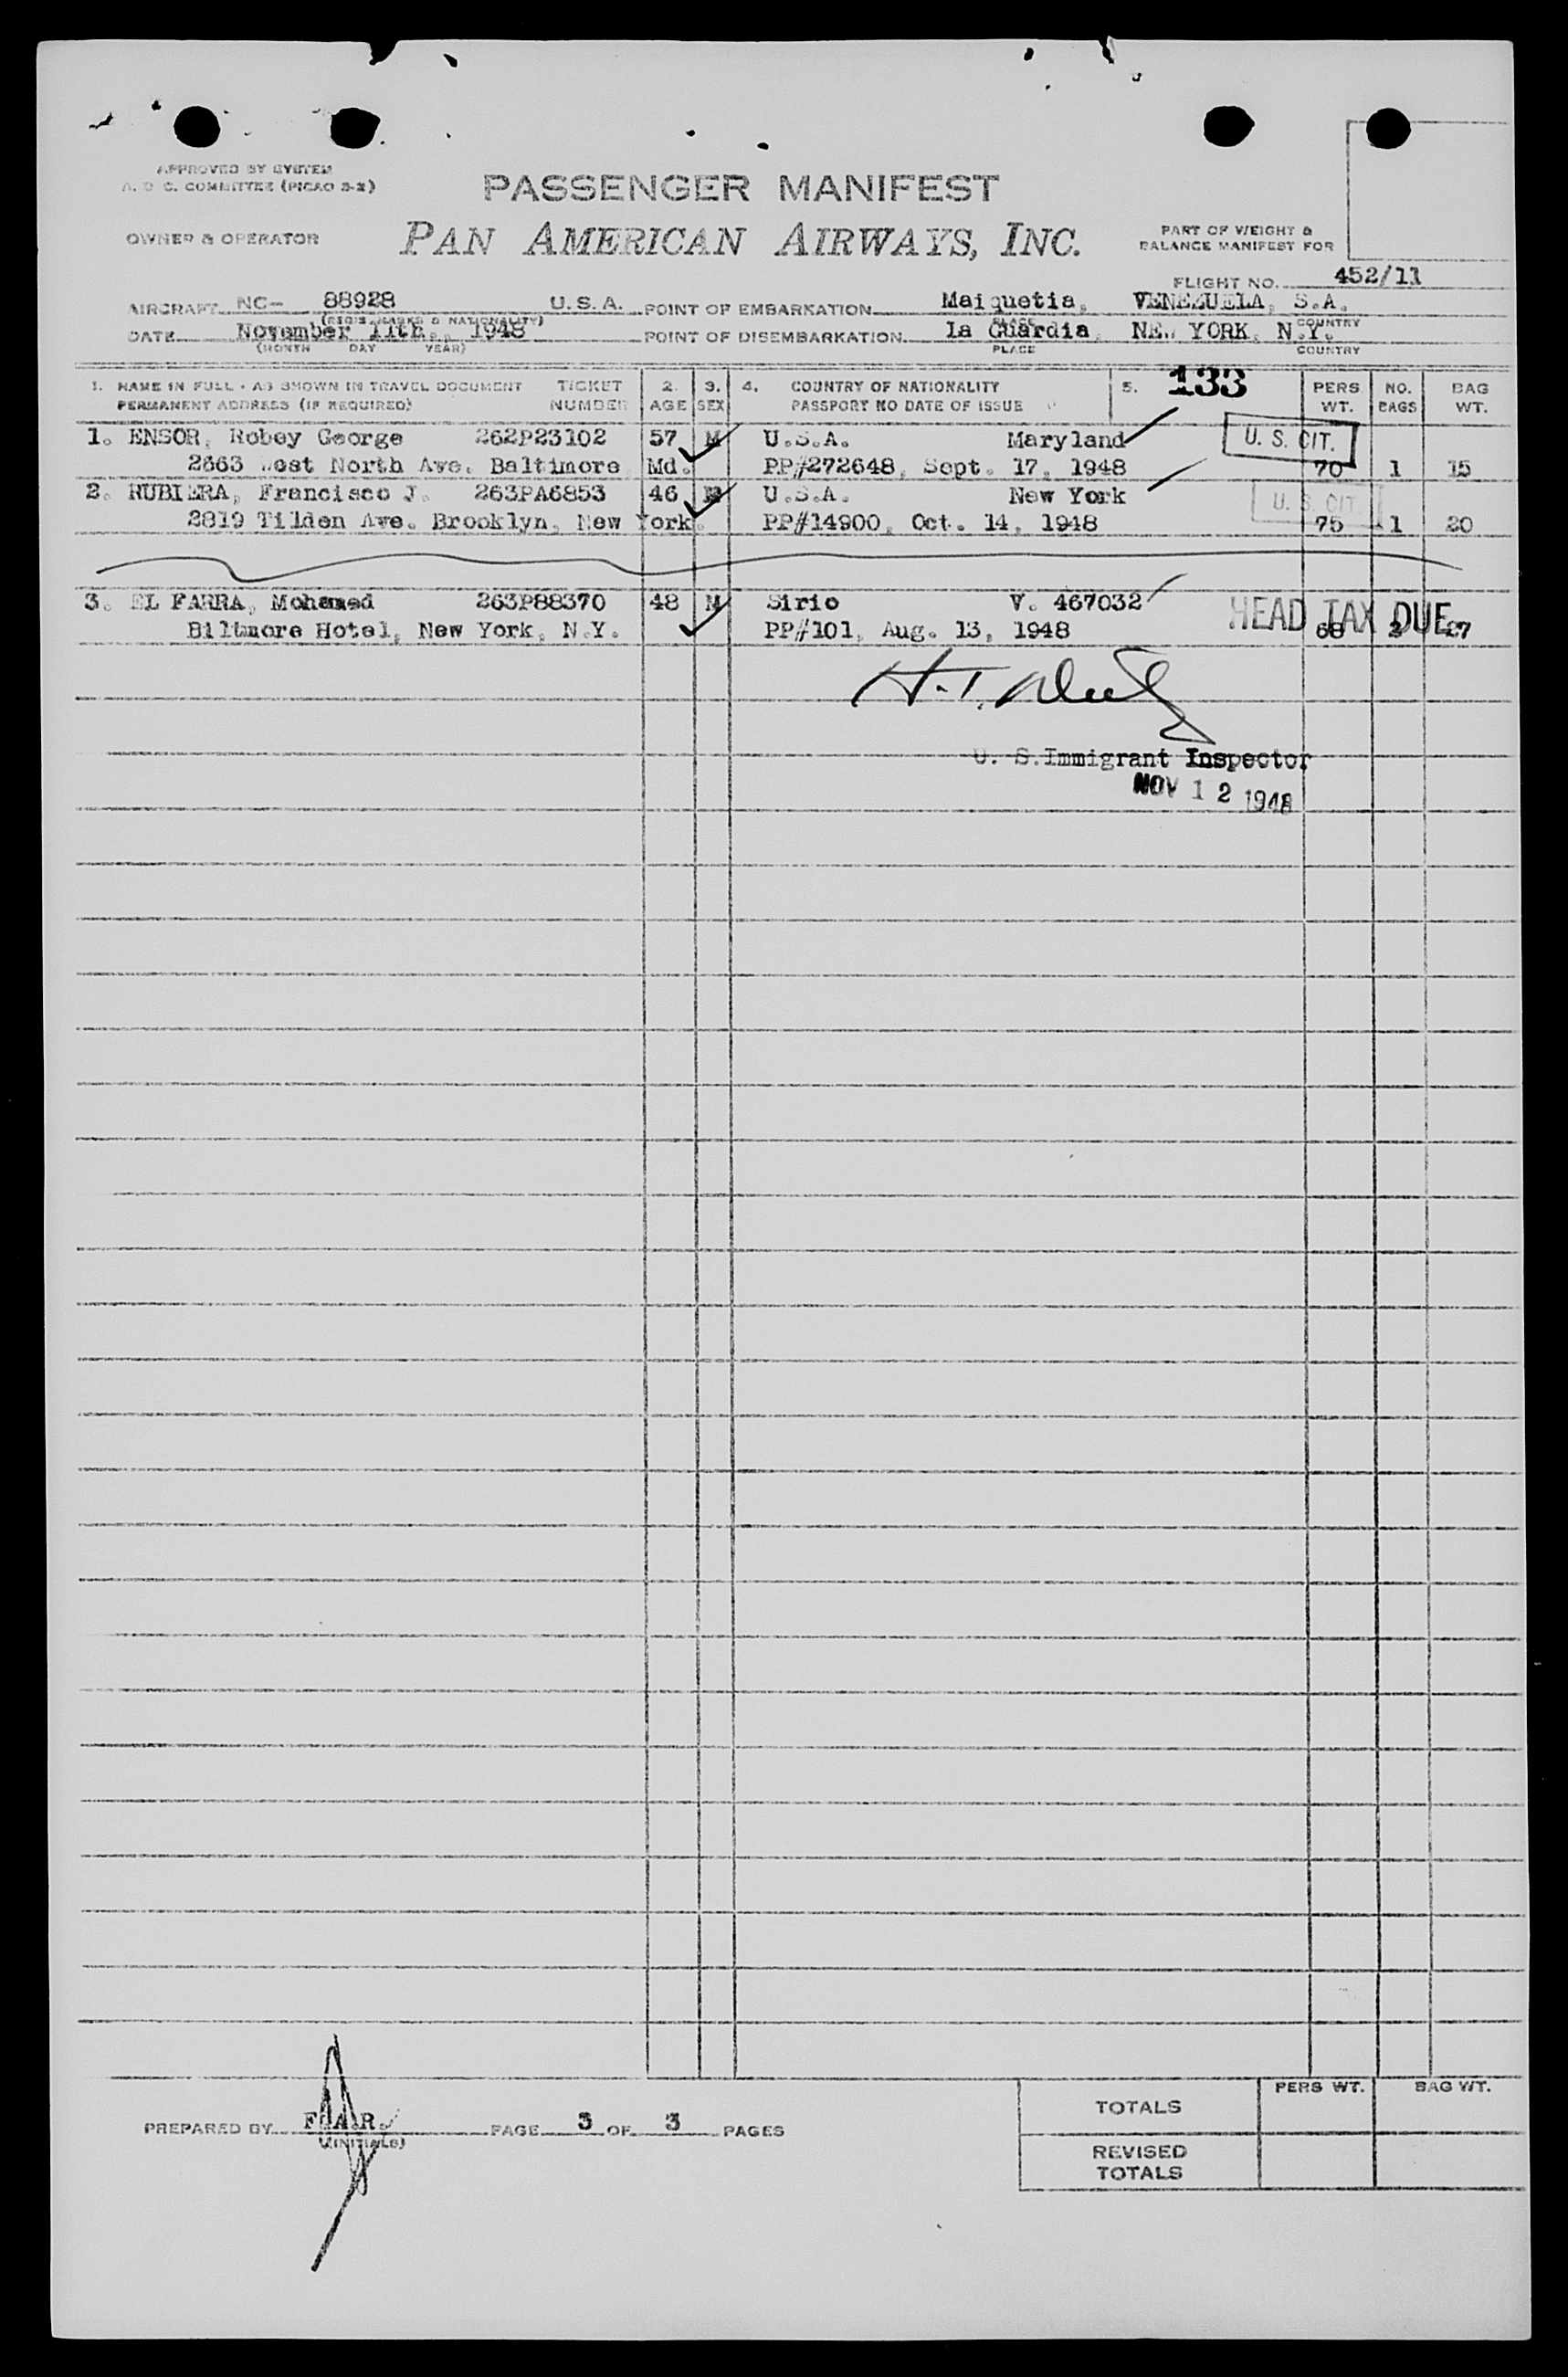 APPROVED BY SYSTEM
A. O C. COMMITTEE (PICAO 3-2)
PASSENGER MANIFEST
OWNER & OPERATOR
PAN AMERICAN AIRWAYS, INC.
PART OF WEIGHT &
BALANCE MANIFEST FOR
FLIGHT NO. 452/11
AIRCRAFT NC- 88928 U.S.A. POINT OF EMBARKATION Maiquetia, VENEZUELA, S.A.
(REG'S. MARKS & NATIONALITY) PLACE COUNTRY
DATE November 11th., 1948 POINT OF DISEMBARKATION la Guardia, NEW YORK, N.Y.
(MONTH DAY YEAR) PLACE COUNTRY
1. NAME IN FULL - AS SHOWN IN TRAVEL DOCUMENT TICKET 2. 3. 4. COUNTRY OF NATIONALITY 5. 133 PERS NO. BAG
PERMANENT ADDRESS (IF REQUIRED) NUMBER AGE SEX PASSPORT NO DATE OF ISSUE WT. BAGS WT.
1. ENSOR, Robey George 262P23102 57 M U.S.A. Maryland U. S. CIT.
2663 West North Ave. Baltimore Md. PP#272648, Sept. 17, 1948 70 1 15
2. RUBIERA, Francisco J. 263PA6853 46 M U.S.A. New York U. S. CIT
2819 Tilden Ave. Brooklyn, New York. PP#14900, Oct. 14, 1948 75 1 20
3. EL FARRA, Mohamed 263P88370 48 M Sirio V. 467032 HEAD TAX DUE
Biltmore Hotel, New York, N.Y. PP#101, Aug. 13, 1948 68 2 27
H.T.
U. S. Immigrant Inspector
NOV 12 1948
PERS WT. BAG WT.
TOTALS
PREPARED BY F.A.R. PAGE 3 OF 3 PAGES
(INITIALS)
REVISED
TOTALS